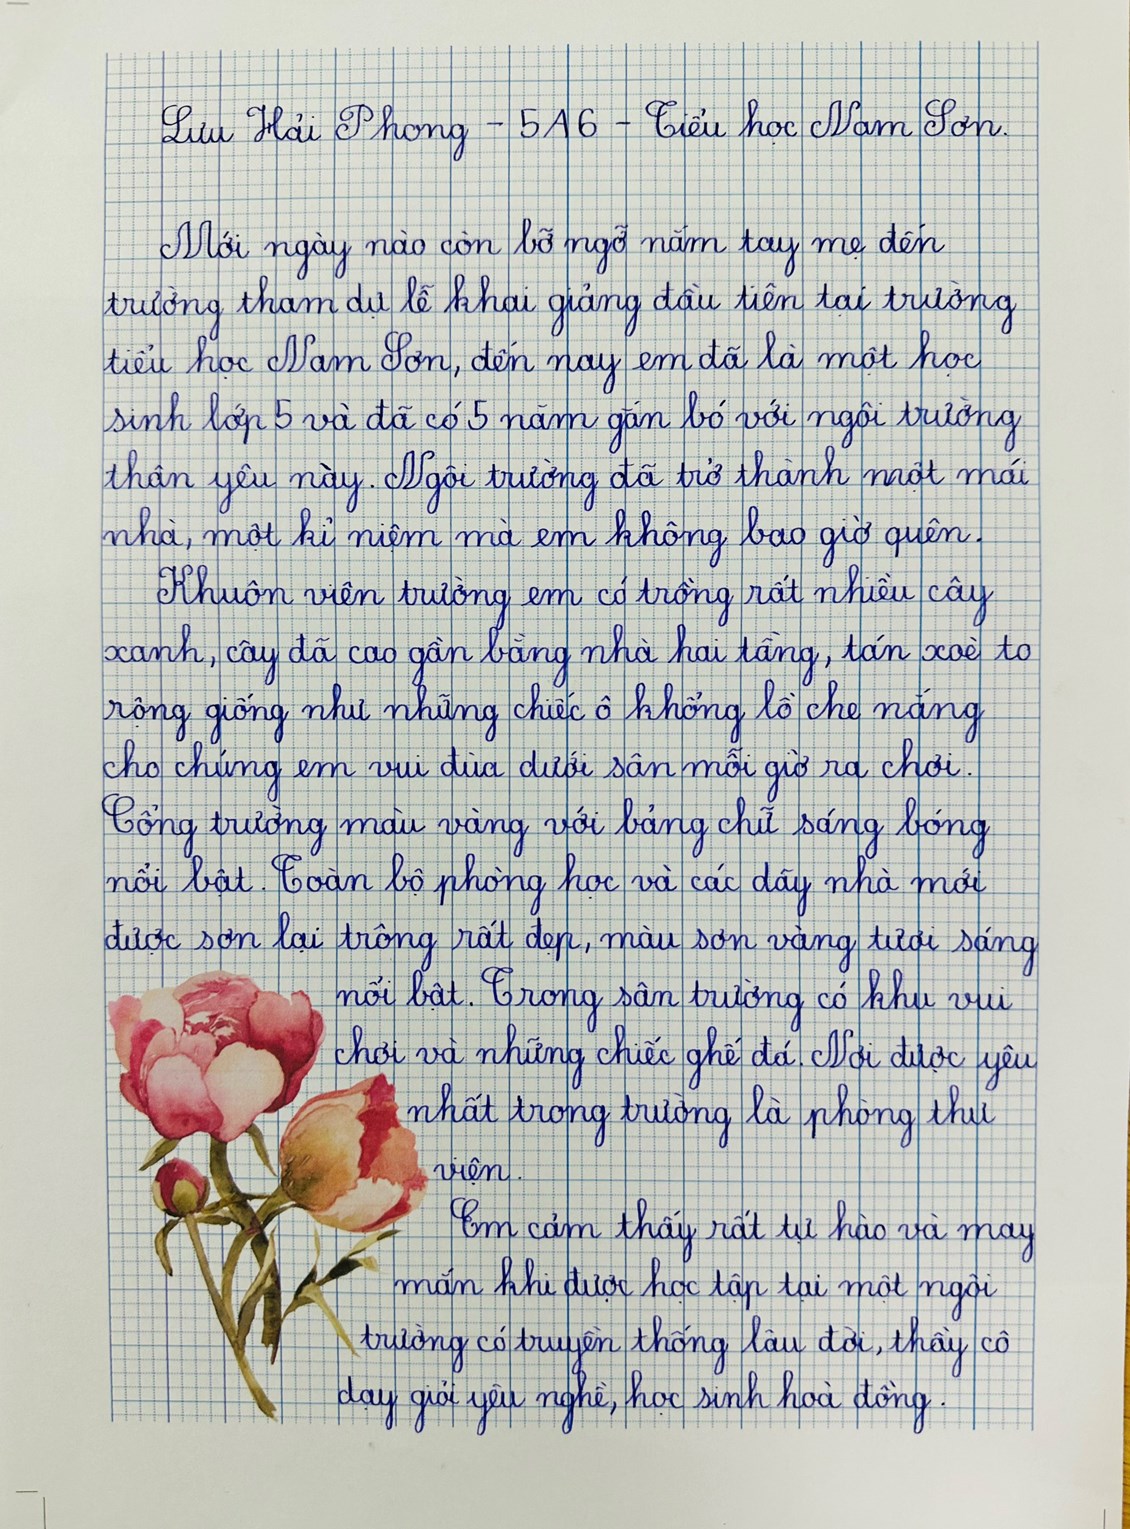 Lưu Hải Phong - 5A6 - Tiểu học Nam Sơn.
Mới ngày nào còn bỡ ngỡ nắm tay mẹ đến
trường tham dự lễ khai giảng đầu tiên tại trường
tiểu học Nam Sơn, đến nay em đã là một học
sinh lớp 5 và đã có 5 năm gắn bó với ngôi trường
thân yêu này. Ngôi trường đã trở thành một mái
nhà, một kỉ niệm mà em không bao giờ quên.
Khuôn viên trường em có trồng rất nhiều cây
xanh, cây đã cao gần bằng nhà hai tầng, tán xoè to
rộng giống như những chiếc ô khổng lồ che nắng
cho chúng em vui đùa dưới sân mỗi giờ ra chơi.
Cổng trường màu vàng với bảng chữ sáng bóng
nổi bật. Toàn bộ phòng học và các dãy nhà mới
được sơn lại trông rất đẹp, màu sơn vàng tươi sáng
nổi bật. Trong sân trường có khu vui
chơi và những chiếc ghế đá. Nơi được yêu
nhất trong trường là phòng thư
viện.
Em cảm thấy rất tự hào và may
mắn khi được học tập tại một ngôi
trường có truyền thống lâu đời, thầy cô
dạy giỏi yêu nghề, học sinh hoà đồng.